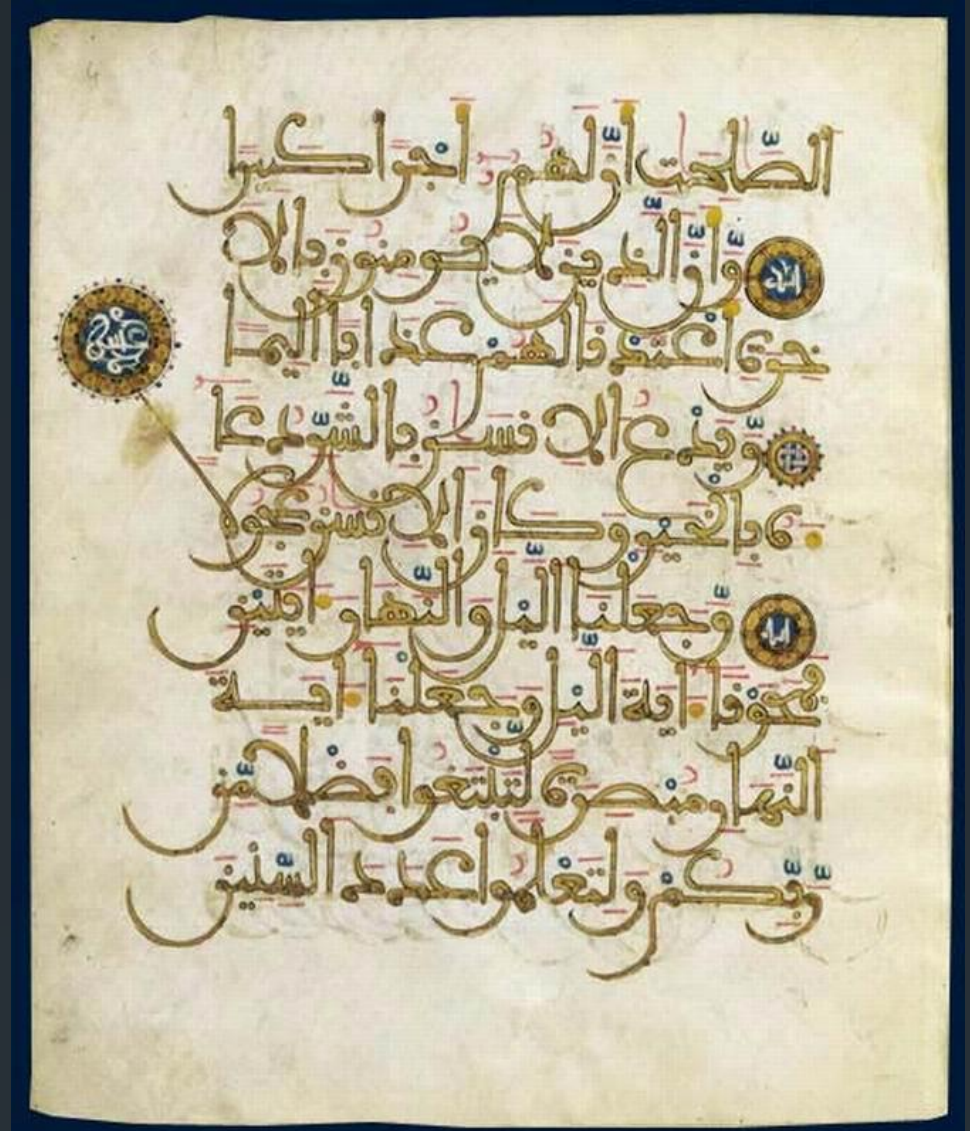 اَ۬لصَّٰلِحَٰتِ أَنَّ لَهُمُۥٓ أَجْراً كَبِيراً
وَأَنَّ اَ۬لذِينَ لَا يُومِنُونَ بِالَا
خِرَةِ أَعْتَدْنَا لَهُمْ عَذَاباً اَلِيماً
وَيَدْعُ اُ۬لِانسَٰنُ بِالشَّرِّ دُعَا
ءَهُۥ بِالْخَيْرِ وَكَانَ اَ۬لِانسَٰنُ عَجُولاً
وَجَعَلْنَا اَ۬ليْلَ وَالنَّهَارَ ءَايَتَيْنِ
فَمَحَوْنَا ءَايَةَ اَ۬ليْلِ وَجَعَلْنَا ءَايَةَ
اَ۬لنَّهَارِ مُبْصِرَةً لِّتَبْتَغُوا فَضْلاً مِّن
رَّبِّكُمْ وَلِتَعْلَمُوا عَدَدَ اَ۬لسِّنِينَ